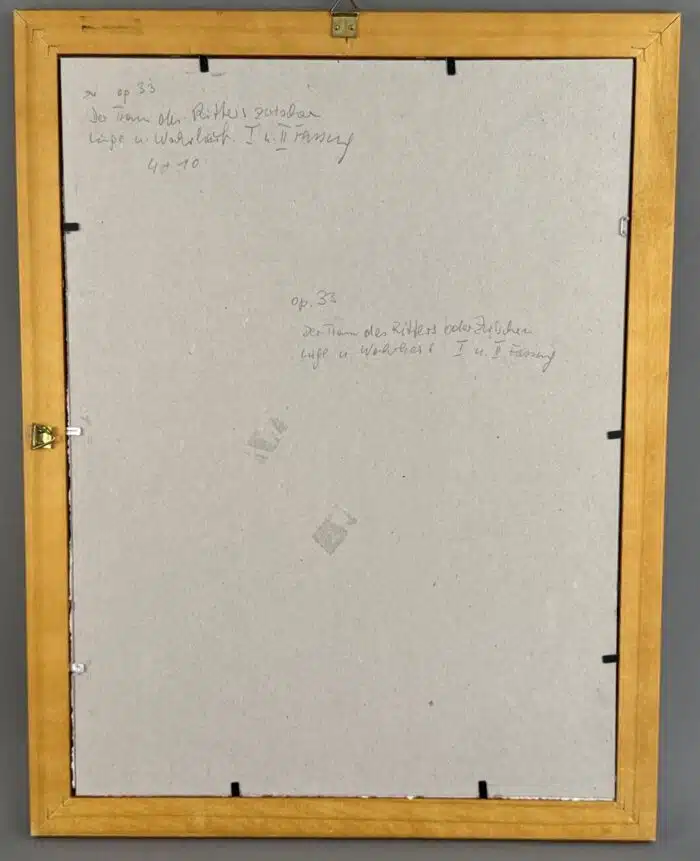 zu op 33
Der Traum des Ritters zwischen
Lüge u. Wahrheit. I u. II Fassung
4 + 10
op. 33
Der Traum des Ritters oder Zwischen
Lüge u. Wahrheit I u. II Fassung